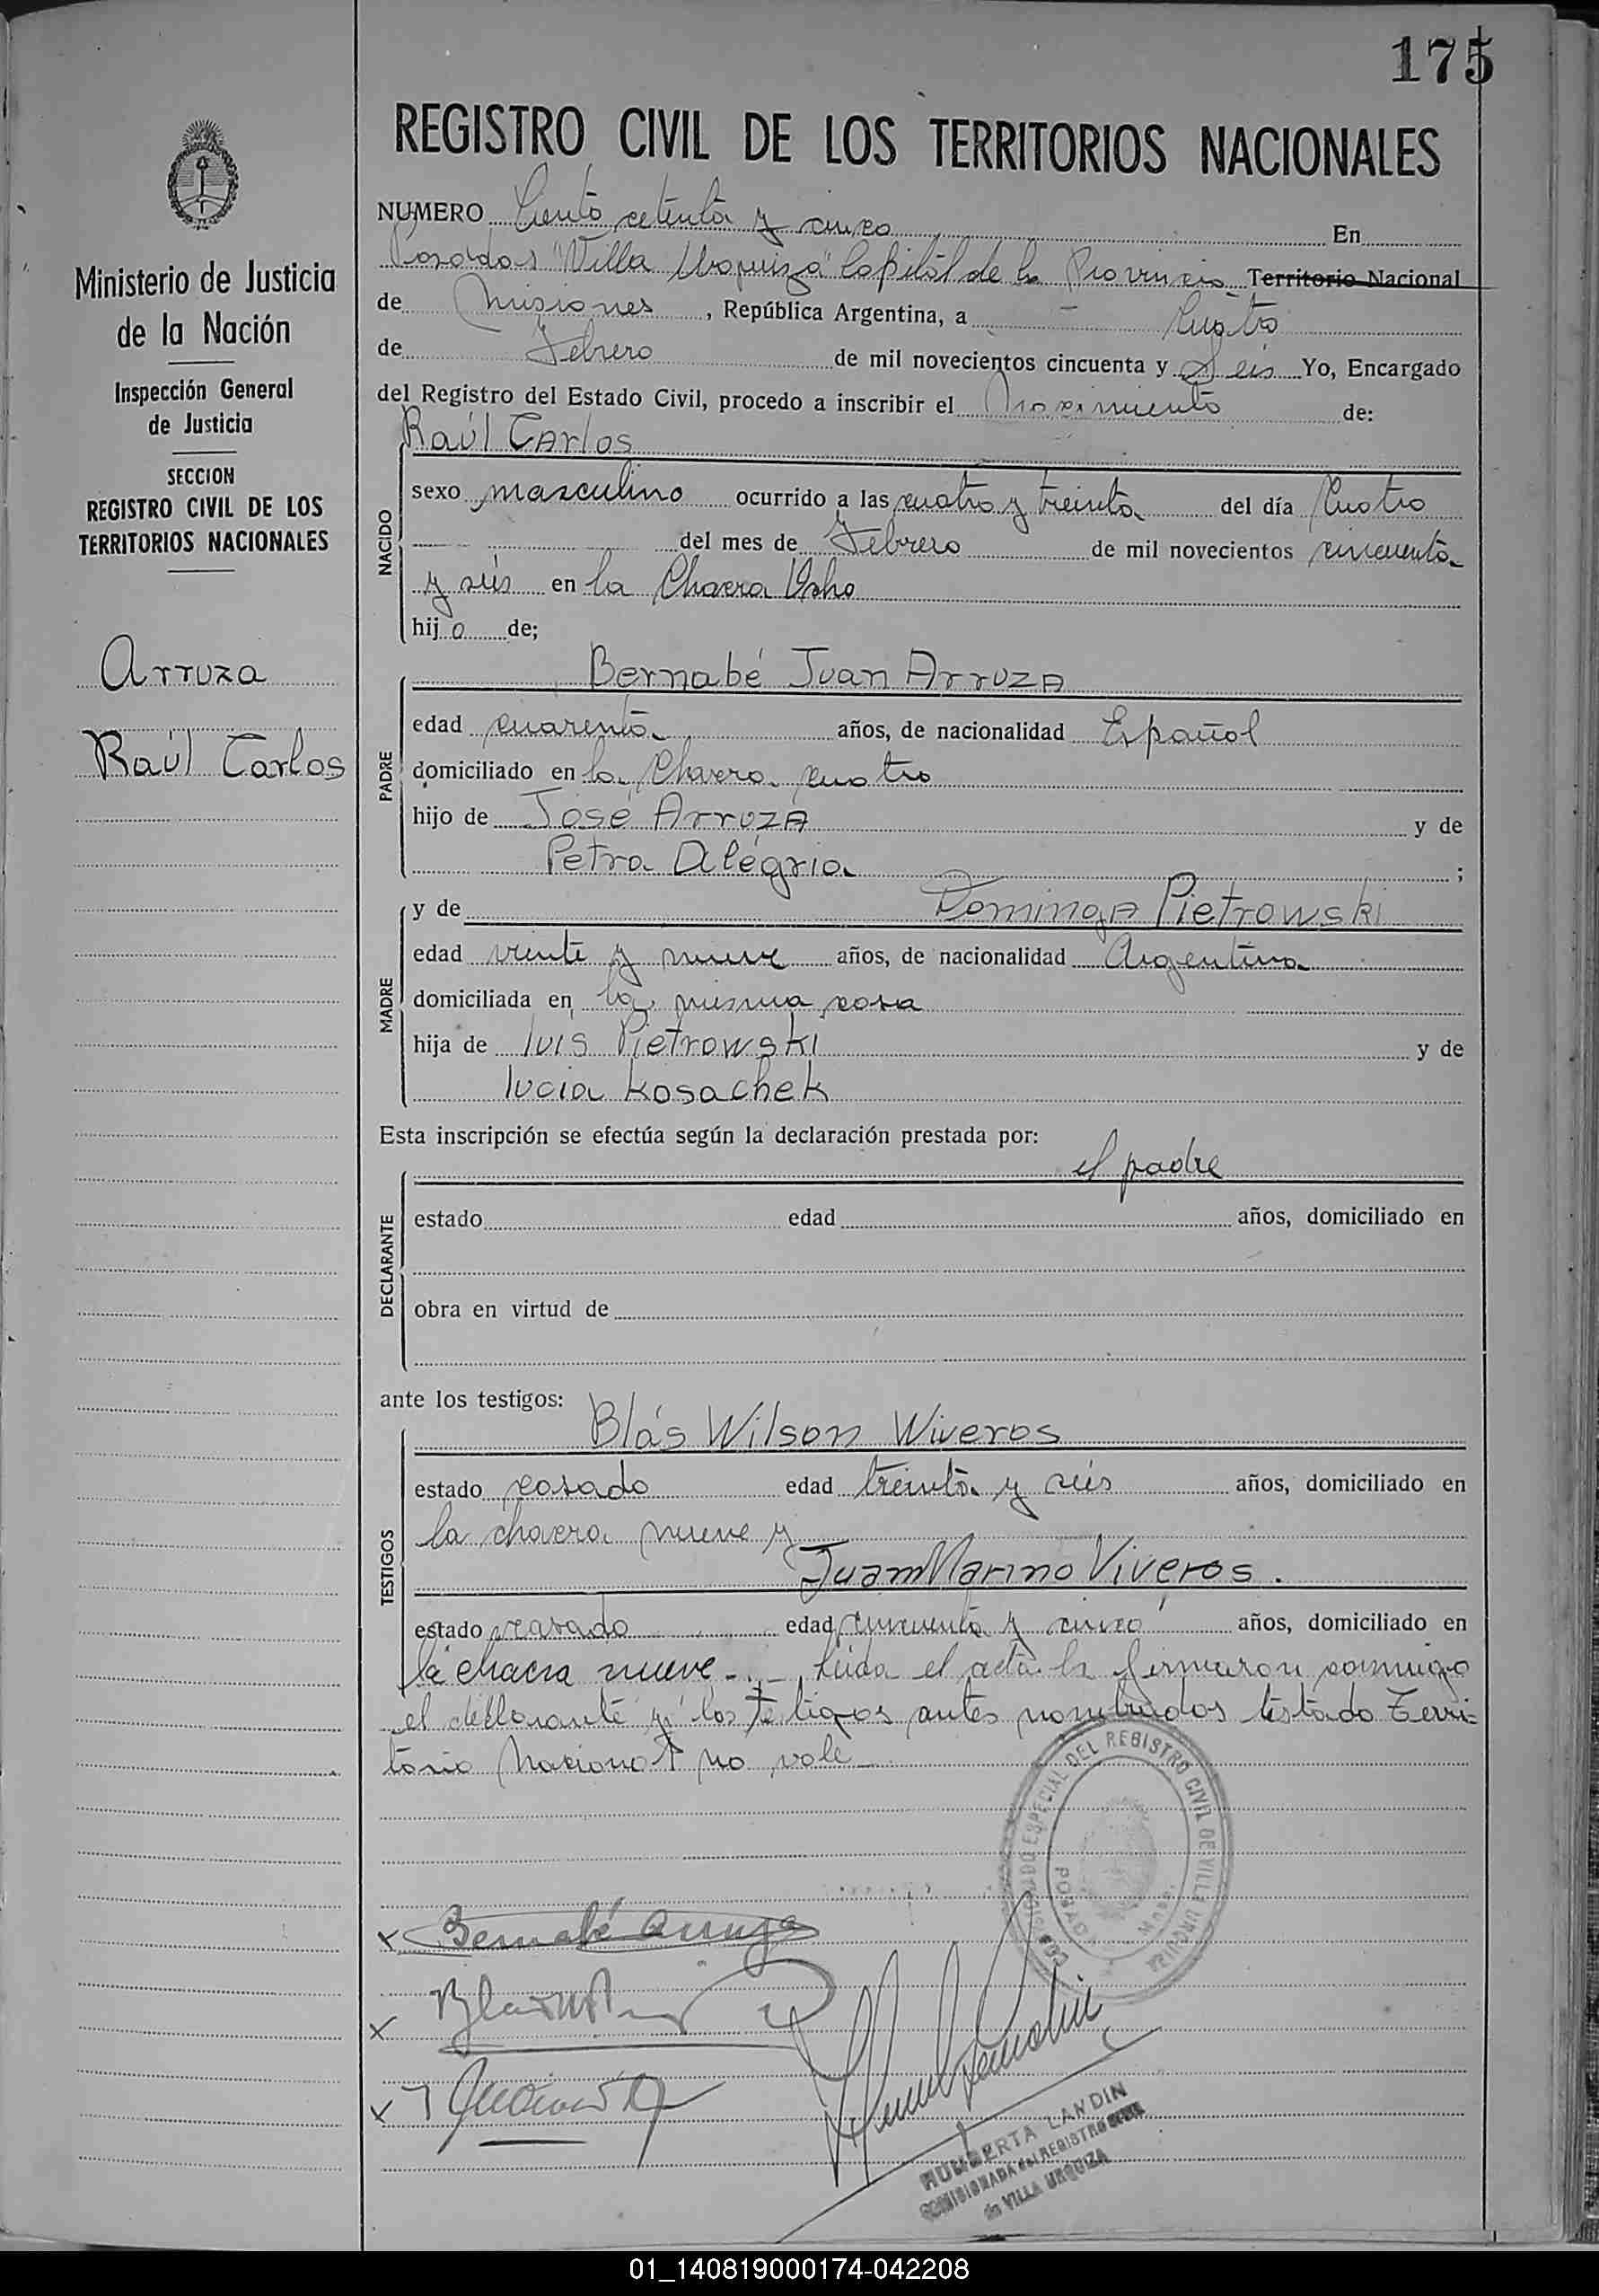 175
REGISTRO CIVIL DE LOS TERRITORIOS NACIONALES
Ministerio de Justicia
de la Nación
Inspección General
de Justicia
SECCION
REGISTRO CIVIL DE LOS
TERRITORIOS NACIONALES
Arruza
Raúl Carlos
NUMERO Ciento setenta y cinco En
Posadas "Villa Urquiza" Capital de la Provincia Territorio Nacional
de Misiones, República Argentina, a Cuatro
de Febrero de mil novecientos cincuenta y Seis Yo, Encargado
del Registro del Estado Civil, procedo a inscribir el Nacimiento de:
Raúl Carlos
NACIDO
sexo masculino ocurrido a las cuatro y treinta del día Cuatro
del mes de Febrero de mil novecientos cincuenta
y seis en la Chacra Ocho
hijo de;
PADRE
Bernabé Juan Arruza
edad cuarenta años, de nacionalidad Español
domiciliado en la Chacra cuatro
hijo de José Arruza y de
Petra Alegria ;
MADRE
y de Dominga Pietrowski
edad veinte y nueve años, de nacionalidad Argentina
domiciliada en la misma casa
hija de luis Pietrowski y de
lucia kosachek
Esta inscripción se efectúa según la declaración prestada por:
DECLARANTE
el padre
estado edad años, domiciliado en
obra en virtud de
ante los testigos:
TESTIGOS
Blás Wilson Wiveros
estado casado edad treinta y seis años, domiciliado en
la chacra nueve y
Juan Marino Viveros.
estado casado edad cincuenta y cinco años, domiciliado en
la chacra nueve.- Leida el acta la firmaron conmigo
el declarante y los testigos antes nombrados testado Terri-
torio Nacional no vale
DEL REGISTRO CIVIL DE VILLA URQUIZA
POSADAS
Bernabé Arruza
HUMBERTA LANDIN
COMISIONADA del REGISTRO CIVIL
de VILLA URQUIZA
01_140819000174-042208